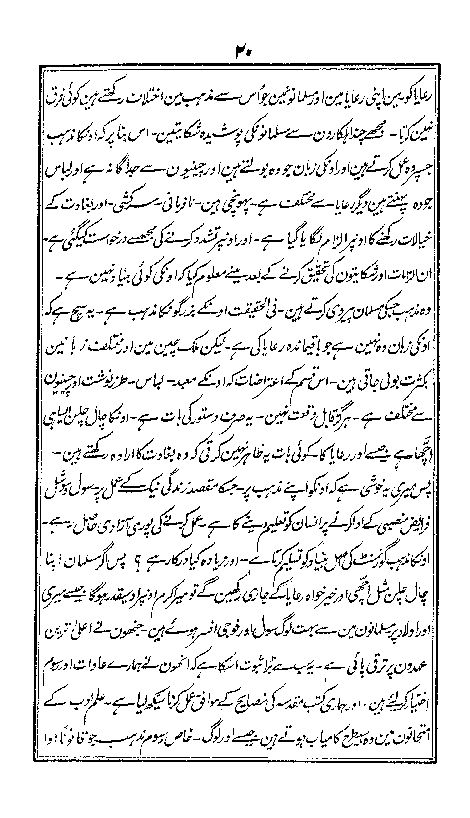 ۲۰
رعایا کو بین اپنی رعایا مین اور مسلمانونمین جو اُس سے مذہب مین اختلاف رکھتے ہین کوئی فرق
نہین کرتا۔ مجھے چند اہلکارون سے مسلمانونکی پوشیدہ شکایتین۔ اس بنا پر کہ اونکا مذہب
جسپر وہ عمل کرتے ہین اور اونکی زبان جو وہ بولتے ہین اور چینیون سے جداگانہ ہے اور لباس
جو وہ پہنتے ہین دیگر رعایا سے مختلف ہے۔ پہونچی ہین۔ نافرمانی سرکشی۔ اور بغاوت کے
خیالات رکھنے کا اونپر الزام لگایا گیا ہے۔ اور اونپر تشدد کرنے کی مجھسے درخواست کیگئی ہے۔
ان الزامات اور شکایتون کی تحقیق کرنے کے بعد مینے معلوم کیا کہ اونکی کوئی بنیاد نہین ہے۔
وہ مذہب جسکی مسلمان پیروی کرتے ہین۔ فی الحقیقت اونکے بزرگونکا مذہب ہے۔ یہ سچ ہے کہ
اونکی زبان وہ نہین ہے جو باقیماندہ رعایا کی ہے۔ لیکن ملک چین مین اور مختلف زبانین
بکثرت بولی جاتی ہین۔ اس قسم کے اعتراضات کہ اونکے معبد۔ لباس۔ طرز نوشت اور چینیون
سے مختلف ہے۔ ہرگز قابل وقعت نہین۔ یہ صرف دستور کی بات ہے۔ اونکا چال چلن ایسا ہی
اچھا ہے جیسے اور رعایا کا۔ کوئی بات یہ ظاہر نہین کرتی کہ وہ بغاوت کا ارادہ رکھتے ہین۔
پس میری یہ خوشی ہے کہ اونکو اپنے مذہب پر۔ جسکا مقصد زندگی نیک کے عمل پر سول و سوشل
فرایض منصبی کے ادا کرنے پر انسان کو تعلیم دینے کا ہے۔ عمل کرنے کی پوری آزادی حاصل رہے۔
اونکا مذہب گورنمنٹ کی اصل بنیاد کو تسلیم کرتا ہے۔ اور زیادہ کیا درکار ہے؟ پس اگر مسلمان اپنا
چال چلن مثل اچھی اور خیرخواہ رعایا کے جاری رکھین گے تو میرا کرم اونپر اسیقدر ہوگا جیسے میری
اور اولاد پر مسلمانون مین سے بہت لوگ سول اور فوجی افسر ہوئے ہین۔ جنھون نے اعلیٰ ترین
عہدون پر ترقی پائی ہے۔ یہ سب سے بڑا ثبوت اسکا ہے کہ انھون نے ہمارے عادات اور رسوم
اختیار کرلئے ہین۔ اور ہماری کتب مقدسہ کی نصایح کے موافق عمل کرنا سیکھ لیا ہے۔ علم ادب کے
امتحانون مین وہ اسیطرح کامیاب ہوتے ہین جیسے اور لوگ۔ خاص رسوم مذہب جو قانونًا ادا